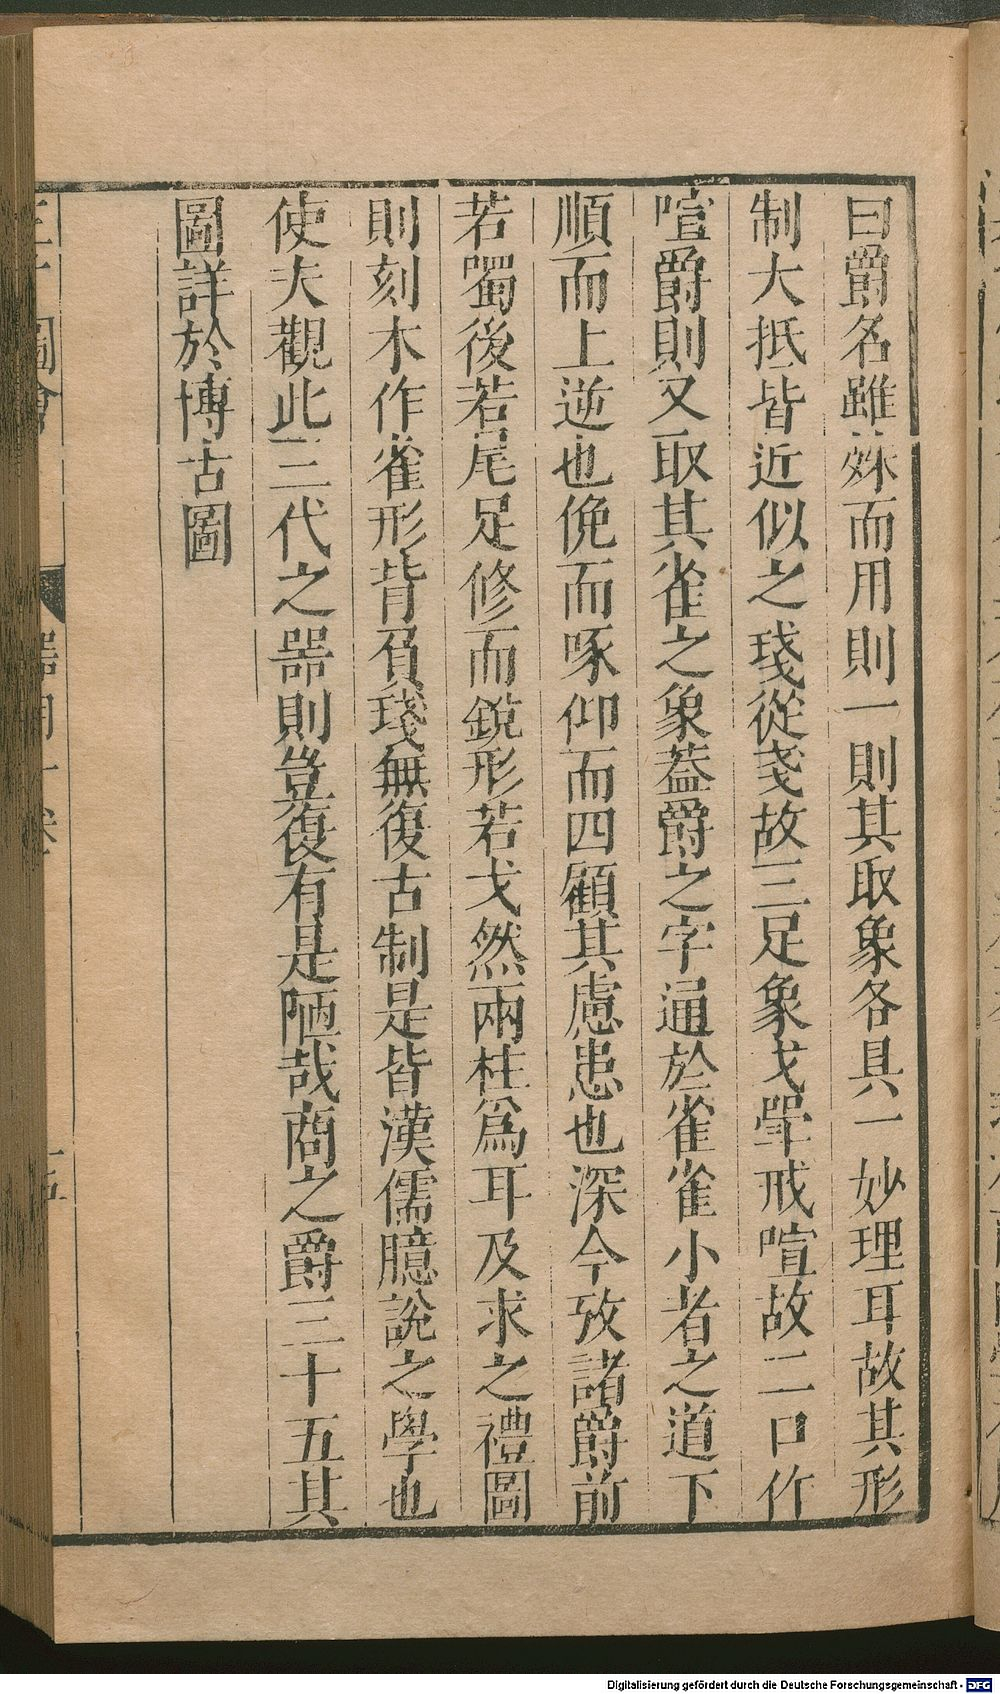 曰爵名雖殊而用則一則其取象各具一妙理耳故其形
制大抵皆近似之琖從戔故三足象戈斝戒喧故二口作
喧爵則又取其雀之象葢爵之字通於雀雀小者之道下
順而上逆也俛而啄仰而四顧其慮患也深今攷諸爵前
若噣後若尾足修而銳形若戈然兩柱爲耳及求之禮圖
則刻木作雀形背負琖無復古制是皆漢儒臆說之學也
使夫觀此三代之器則豈復有是陋哉商之爵三十五其
圖詳於博古圖
Digitalisierung gefördert durch die Deutsche Forschungsgemeinschaft - DFG